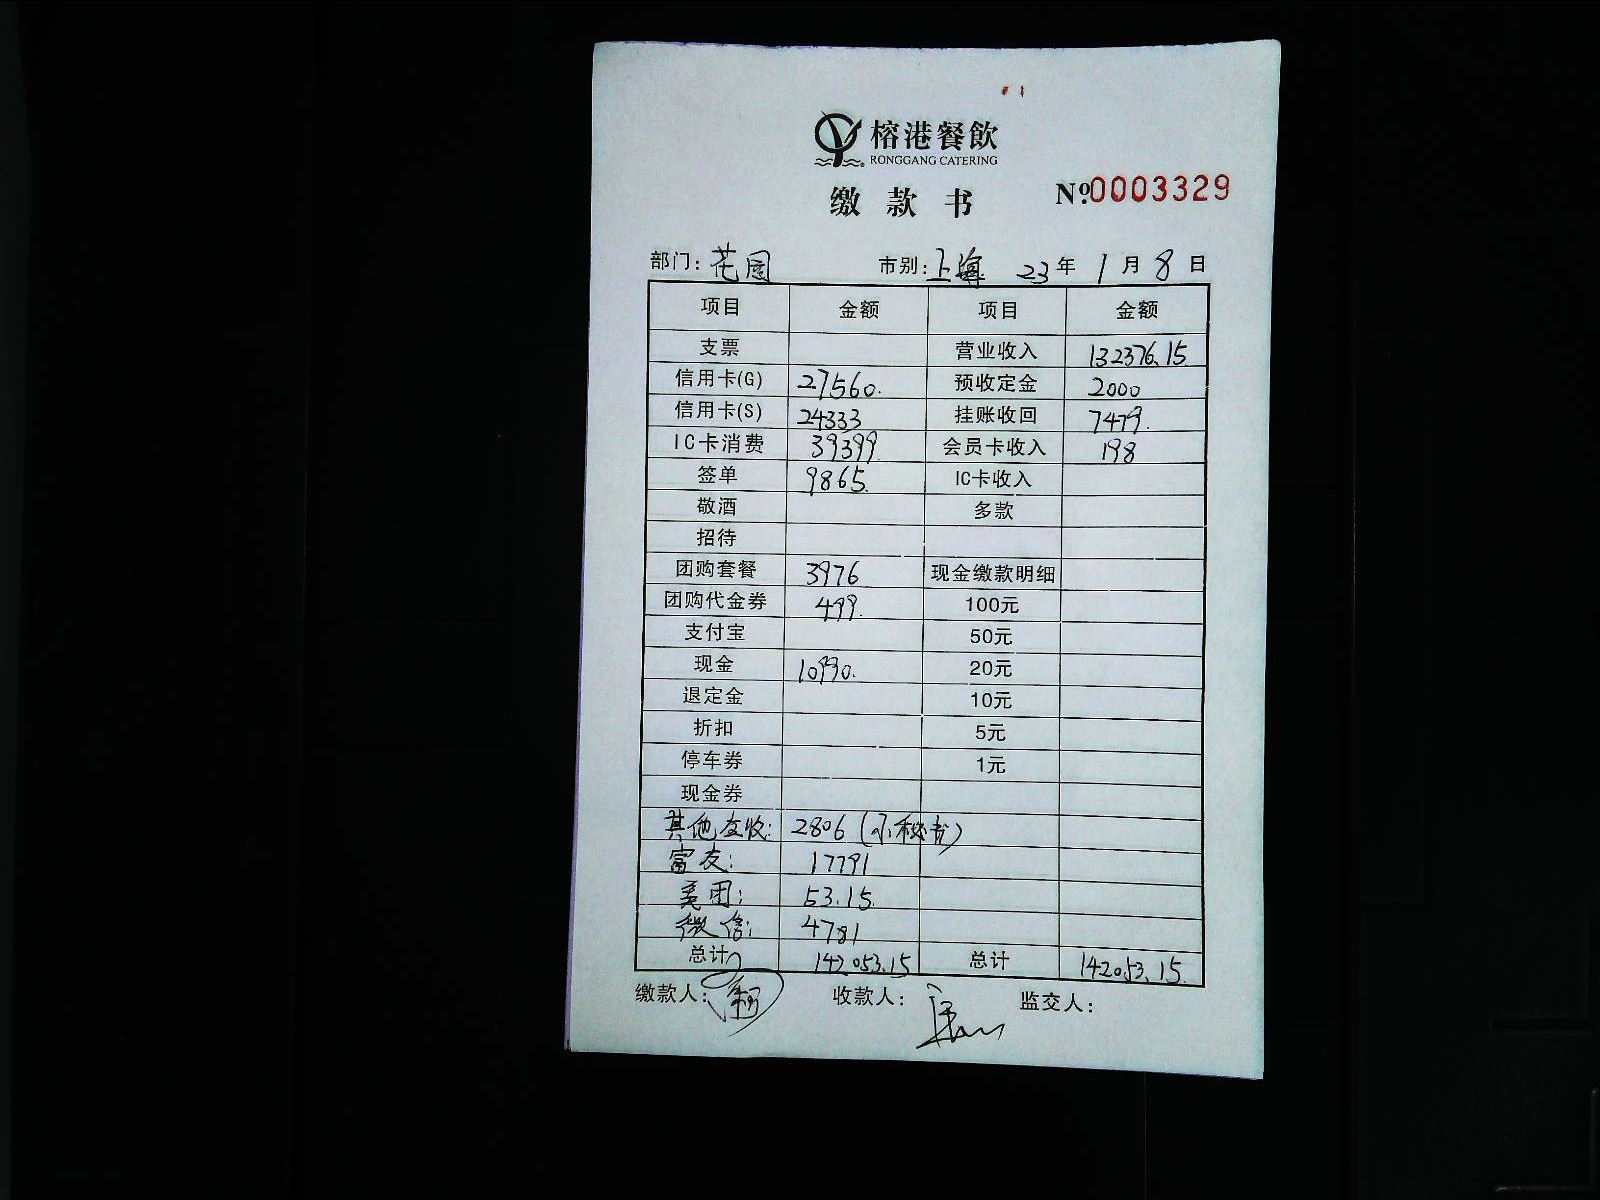 榕港餐飲
RONGGANG CATERING
缴款书 №0003329
部门: 花园 市别: 上海 23年1月8日
项目 金额 项目 金额
支票 营业收入 132376.15
信用卡(G) 27560. 预收定金 2000
信用卡(S) 24333 挂账收回 7479.
IC卡消费 39399 会员卡收入 198
签单 9865. IC卡收入
敬酒 多款
招待
团购套餐 3976 现金缴款明细
团购代金券 499. 100元
支付宝 50元
现金 10990. 20元
退定金 10元
折扣 5元
停车券 1元
现金券
其他应收: 2806 (小秘书)
富友: 17791
美团: 53.15.
微信: 4781
总计 142053.15 总计 142053.15.
缴款人: 收款人: 监交人: